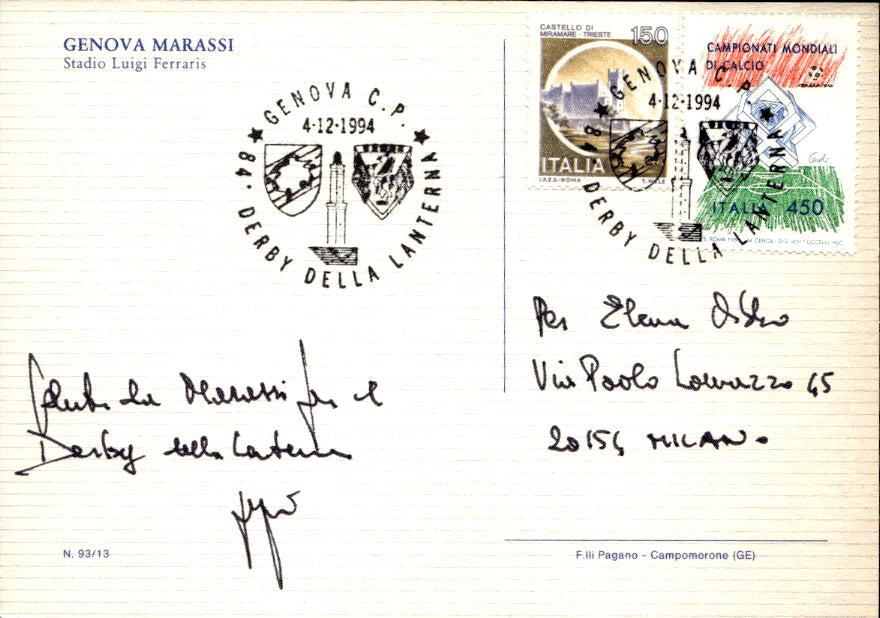 GENOVA MARASSI
Stadio Luigi Ferraris
★ GENOVA C.P. ★
4-12-1994
84. DERBY DELLA LANTERNA
CASTELLO DI
MIRAMARE - TRIESTE
150
ITALIA
I.P.Z.S. - ROMA
CAMPIONATI MONDIALI
DI CALCIO
ITALIA '90
ITALIA 450
★ GENOVA C.P. ★
4-12-1994
84. DERBY DELLA LANTERNA
Per Elena
Via Paolo Lomazzo 45
20154 MILANO
Saluti da Marassi per il
Derby della Lanterna
N. 93/13
F.lli Pagano - Campomorone (GE)